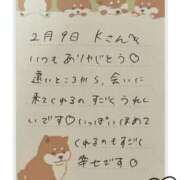 2月9日 Kさんへ
いつもありがとう♡
遠いところから、会いに
来てくれるのすごくうれし
いです♡いっぱいほめて
くれるのもすごく
幸せです♡